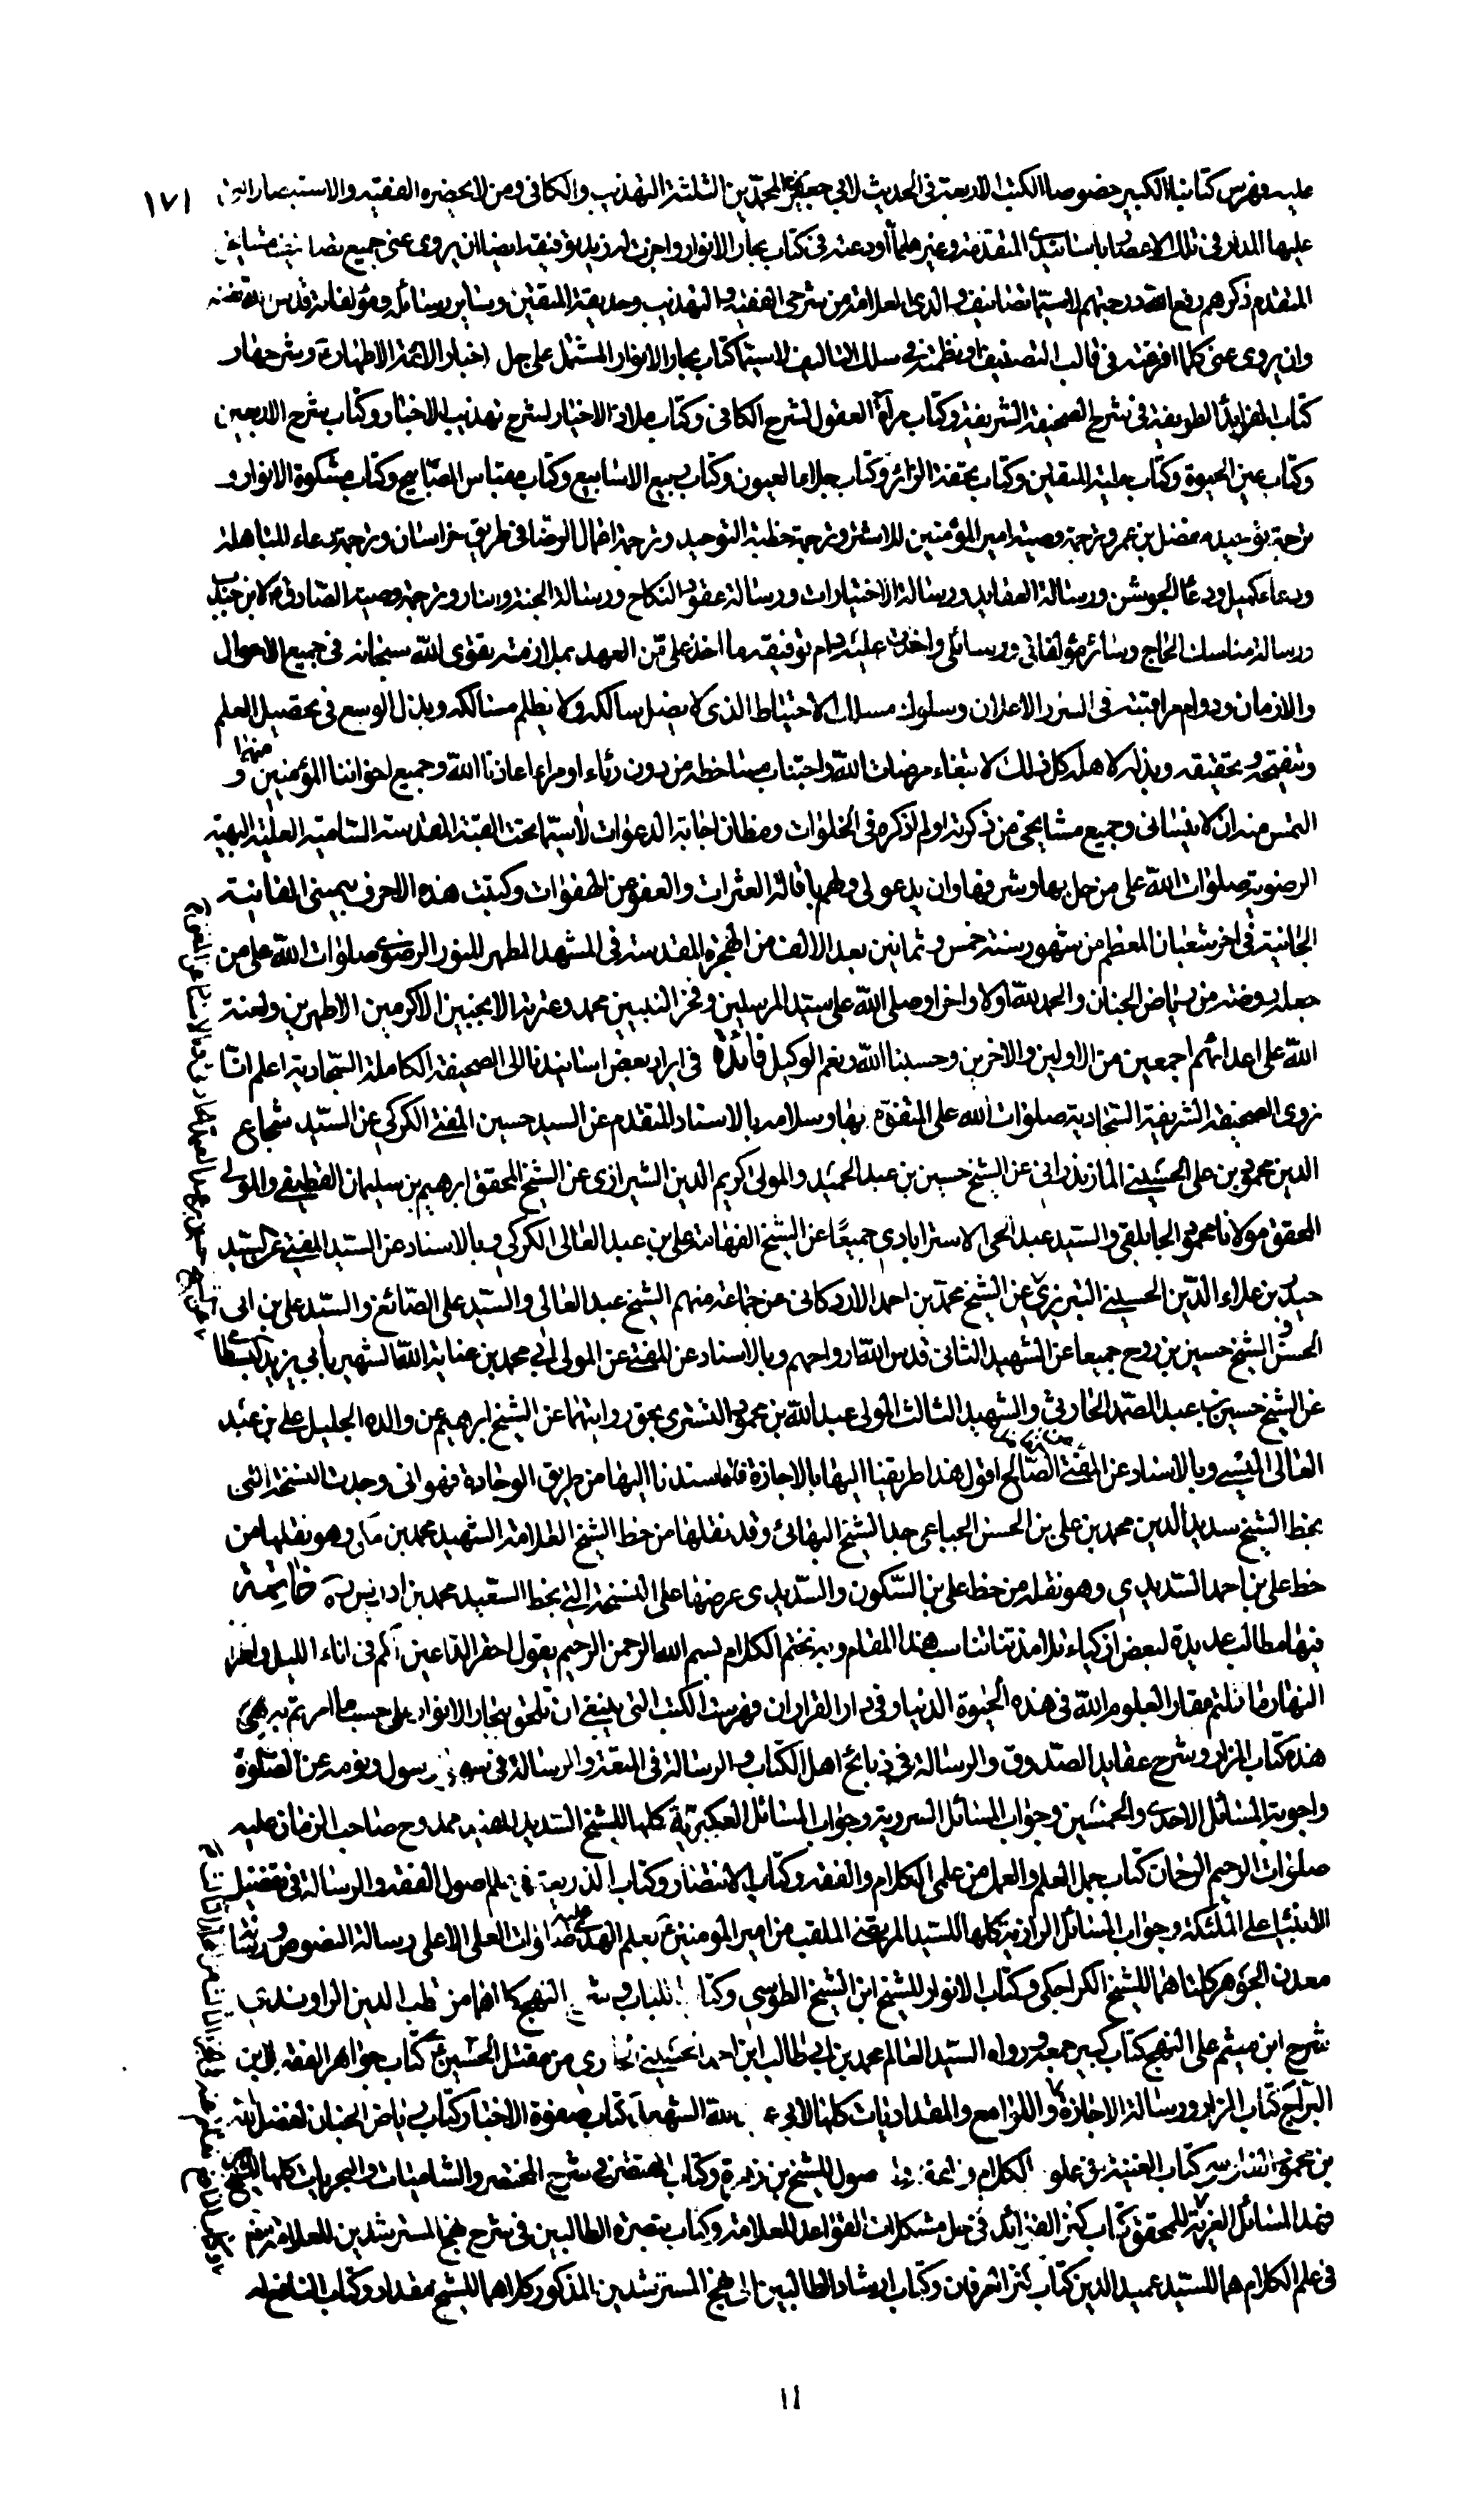 ١٧١
عليه فهرس كتابنا الكبير خصوصا الكتب الاربعة فى الحديث لابي جعفر المحمدين الثلثة التهذيب والكافى ومن لا يحضره الفقيه والاستبصار التى
عليها المدار فى تلك الاعصار باسانيدى المتقدمة وغيرها مما أودعته فى كتاب بحار الانوار واجزت له زيد توفيقه ايضا ان يروى عنى جميع تصانيف مشايخى
المتقدم ذكرهم رفع الله درجتهم لا سيما تصانيف والدى العلامة من شرحى الفقيه والتهذيب وحديقة المتقين وساير رسائله ومؤلفاته قدس الله نفسه
وان يروى عنى كلما افرغته فى قالب التصنيف او نظمته فى سلك التاليف لا سيما كتاب بحار الانوار المشتمل على جل اخبار الائمة الاطهار وشرحها و
كتاب الفرايد الطريفة فى شرح الصحيفة الشريفة وكتاب مرآة العقول لشرح الكافى وكتاب ملاذ الاخيار لشرح تهذيب الاخبار وكتاب شرح الاربعين
وكتاب عين الحيوة وكتاب حلية المتقين وكتاب تحفة الزائر وكتاب جلاء العيون وكتاب ربيع الاسابيع وكتاب مقباس المصابيح وكتاب مشكوة الانوار و
ترجمة توحيد مفضل بن عمر وترجمة وصية امير المؤمنين للاشتر وترجمة خطبة التوحيد وترجمة اعمال الرضا فى طريق خراسان وترجمة دعاء المباهلة
ودعاء كميل ودعاء الجوشن ورسالة العقايد ورسالة الاختيارات ورسالة عقود النكاح ورسالة الجنة والنار وترجمة وصية الصادق لابن جندب
ورسالة مناسك الحاج وسائر مؤلفاتى ورسائلى واخذت عليه دام توفيقه ما اخذ على من العهد بملازمة تقوى الله سبحانه فى جميع الاحوال
والازمان ودوام مراقبته فى السر والاعلان وسلوك مسلك الاحتياط الذى لا يضل سالكه ولا يظلم مسالكه وبذل الوسع فى تحصيل العلم
وتنقيحه وتحقيقه وبذله لاهله كل ذلك لابتغاء مرضات الله واجتناب مساخطه من دون رئاء او مراء اعاذنا الله وجميع اخواننا المؤمنين منهما و
التمس منه ان لا ينسانى وجميع مشايخى من ذكرته او لم اذكره فى الخلوات ومظان اجابة الدعوات لا سيما تحت القبة المقدسة السامية العلية البهية
الرضوية صلوات الله على من حل بها وشرفها وان يدعو لى ولهم باقالة العثرات والعفو عن الهفوات وكتبت هذه الاحرف بيمينى الفانية
الجانية فى اخر شعبان المعظم من شهور سنة خمس وثمانين بعد الالف من الهجرة المقدسة فى المشهد المطهر المنور الرضوى صلوات الله على من
جعل روضته من رياض الجنان والحمد لله اولا واخرا وصلى الله على سيد المرسلين وفخر النبيين محمد وعترته الانجبين الاكرمين الاطهرين ولعنة
الله على اعدائهم اجمعين من الاولين والاخرين وحسبنا الله ونعم الوكيل فائدة فى ايراد بعض اسانيدنا الى الصحيفة الكاملة السجادية اعلم انا
نروى الصحيفة الشريفة السجادية صلوات الله على المتفوه بها وسلامه بالاسناد المتقدم عن السيد حسين المفتى الكركى عن السيد شجاع
الدين محمود بن على الحسينى المازندرانى عن الشيخ حسين بن عبد الحميد والمولى كريم الدين الشيرازى عن الشيخ المحقق ابرهيم بن سليمان القطيفى والمولى
المحقق مولانا محمود الجابلقى والسيد عبد الحى الاسترابادى جميعا عن الشيخ الفهامة على بن عبد العالى الكركى وبالاسناد عن السيد المفتى عن السيد
حيدر بن علاء الدين الحسينى التبريزى عن الشيخ محمد بن احمد الاردكانى عن جماعة منهم الشيخ عبد العالى والسيد على الصائغ والسيد على بن ابى
الحسن والشيخ حسين بن روح جميعا عن الشهيد الثانى قدس الله ارواحهم وبالاسناد عن المفتى عن المولى ابى محمد بن عناية الله الشهير بابى يزيد البسطامى
عن الشيخ حسين بن عبد الصمد الحارثى والشهيد الثالث المولى عبد الله بن محمود التسترى بحق روايتهما عن الشيخ ابرهيم عن والده الجليل على بن عبد
العالى الميسى وبالاسناد عن المفتى الصالح اقول هذا طريقنا اليها بالاجازة فاما سندنا اليها من طريق الوجادة فهو انى وجدت النسخة التى
بخط الشيخ سديد الدين محمد بن على بن الحسن الجباعى جد الشيخ البهائى وقد نقلها من خط الشيخ العلامة الشهيد محمد بن مكى وهو نقلها من
خط على بن احمد السديدى وهو نقله من خط على بن السكون والسديدى عرضها على النسخة التى بخط السعيد محمد بن ادريس ره خاتمة
فيها مطالب عديدة لبعض ازكياء تلامذتنا تناسب هذا المقام وبه نختم الكلام بسم الله الرحمن الرحيم يقول احقر الداعين لكم فى اناء الليل واطراف
النهار خادمكم مقار العلوم الله فى هذه الحيوة الدنيا وفى دار القرار ان فهرست الكتب التى ينبغى ان تلحق ببحار الانوار على حسب ما امرتم به هى
هذه كتاب المزار وشرح عقايد الصدوق والرسالة فى ذبائح اهل الكتاب والرسالة فى المتعة والرسالة فى سهو رسول ونومه عن الصلوة
واجوبة المسائل الاحدى والخمسين وجواب المسائل السروية وجواب المسائل العكبرية كلها للشيخ السديد المفيد ممدوح صاحب الزمان عليه
صلوات الرحيم الرحمان كتاب جمل العلم والعمل من علمى الكلام والفقه وكتاب الانتصار وكتاب الذريعة فى علم اصول الفقه والرسالة فى تفضيل
الانبياء على الملئكة وجواب المسائل الرازية كلها للسيد المرتضى الملقب من امير المؤمنين بعلم الهدى عليه صلوات العلى الاعلى رسالة النصوص ورسالة
معدن الجواهر كلتاهما للشيخ الكراجكى وكتاب الانوار للشيخ ابن الشيخ الطوسى وكتاب اللباب وشرح النهج كلاهما من قطب الدين الراوندى
شرح ابن ميثم على النهج كتاب كبير جمعه ورواه السيد العالم محمد بن ابى طالب ابن احمد الحسينى الحائرى من مقتل الحسين كتاب جواهر الفقه لابن
البراج كتاب المزار ورسالة الاجازة واللوامع والمقداديات كلها لابى عبد الله الشهيد كتاب صفوة الاخبار كتاب رياض الجنان لفضل الله
بن محمود الفارسى كتاب الغنية فى علوم الكلام والفقه والاصول للشيخ بن زهرة وكتاب المقتصر فى شرح المختصر والشاميات والبحريات كلها للشيخ
فهد المسائل الغرية للمحقق كتاب كنز الفوائد فى حل مشكلات القواعد للعلامة وكتاب تبصرة الطالبين فى شرح نهج المسترشدين للعلامة
فى علم الكلام هما للسيد عميد الدين كتاب كنز العرفان وكتاب ارشاد الطالبين الى نهج المسترشدين المذكور كلاهما للشيخ مقداد وكتاب الناسخ له
١١